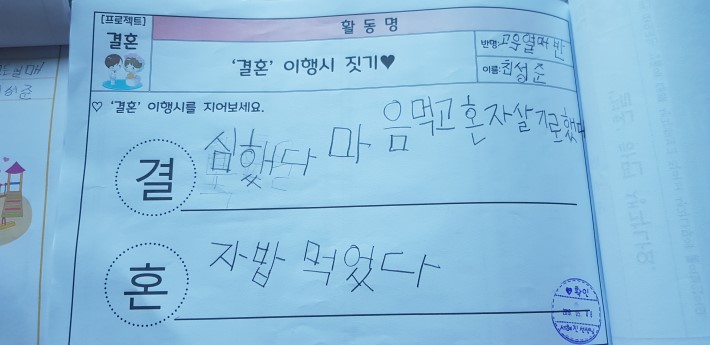 [프로젝트]
결혼
활동명
'결혼' 이행시 짓기♥
반명:고우열매반
이름:최성준
♡ '결혼' 이행시를 지어보세요.
결 심했다 마음먹고 혼자살기로했다
혼 자밥 먹었다
♥확인